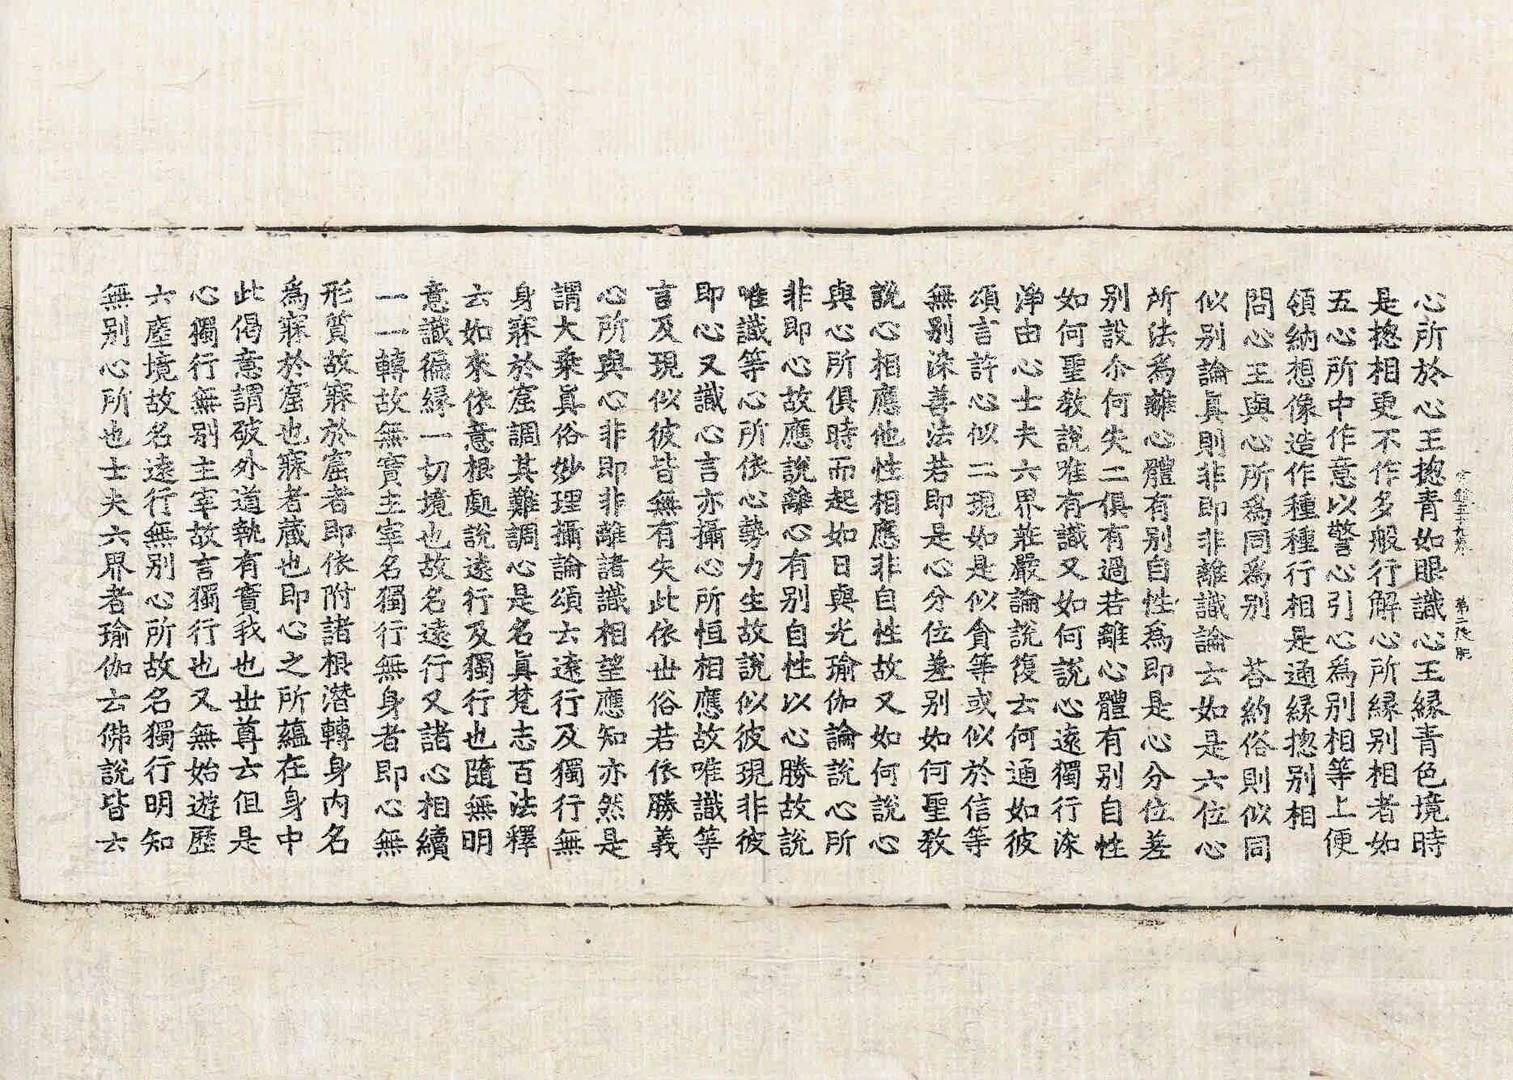 宗鏡五十九卷　第二張　肥
心所於心王揔青如眼識心王緣青色境時
是揔相更不作多般行解心所緣別相者如
五心所中作意以警心引心為別相等上便
領納想像造作種種行相是通緣揔別相
問心王與心所為同為別　荅約俗則似同
似別論眞則非即非離識論云如是六位心
所法為離心體有別自性為即是心分位差
別設尒何失二俱有過若離心體有別自性
如何聖教說唯有識又如何說心遠獨行染
淨由心士夫六界莊嚴論說復云何通如彼
頌言許心似二現如是似貪等或似於信等
無別染善法若即是心分位差別如何聖教
說心相應他性相應非自性故又如何說心
與心所俱時而起如日與光瑜伽論說心所
非即心故應說離心有別自性以心勝故說
唯識等心所依心勢力生故說似彼現非彼
即心又識心言亦攝心所恒相應故唯識等
言及現似彼皆無有失此依世俗若依勝義
心所與心非即非離諸識相望應知亦然是
謂大乘眞俗妙理攝論頌云遠行及獨行無
身寐於窟調其難調心是名眞梵志百法釋
云如來依意根處說遠行及獨行也隨無明
意識徧緣一切境也故名遠行又諸心相續
一一轉故無實主宰名獨行無身者即心無
形質故寐於窟者即依附諸根潛轉身內名
為寐於窟也寐者藏也即心之所蘊在身中
此偈意謂破外道執有實我也世尊云但是
心獨行無別主宰故言獨行也又無始遊歷
六塵境故名遠行無別心所故名獨行明知
無別心所也士夫六界者瑜伽云佛說皆云